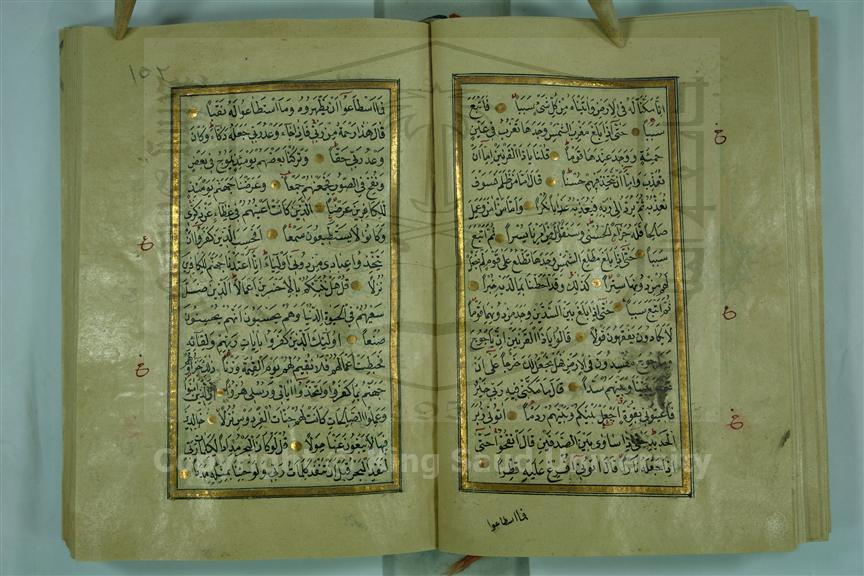 انا مكنا له في الارض واتيناه من كل شئ سببا فاتبع
سببا حتى اذا بلغ مغرب الشمس وجدها تغرب في عين
حمئة ووجد عندها قوما قلنا ياذا القرنين اما ان
تعذب واما ان تتخذ فيهم حسنا قال اما من ظلم فسوف
نعذبه ثم يرد الى ربه فيعذبه عذابا نكرا واما من امن وعمل
صالحا فله جزاء الحسنى وسنقول له من امرنا يسرا ثم اتبع
سببا حتى اذا بلغ مطلع الشمس وجدها تطلع على قوم لم نجعل
لهم من دونها سترا كذلك وقد احطنا بما لديه خبرا
ثم اتبع سببا حتى اذا بلغ بين السدين وجد من دونهما قوما
لا يكادون يفقهون قولا قالوا ياذا القرنين ان يأجوج
ومأجوج مفسدون في الارض فهل نجعل لك خرجا على ان
تجعل بيننا وبينهم سدا قال ما مكنى فيه ربي خير
فاعينوني بقوة اجعل بينكم وبينهم ردما اتوني زبر
الحديد حتى اذا ساوى بين الصدفين قال انفخوا حتى
اذا جعله نارا قال اتوني افرغ عليه قطرا
فما اسطاعوا
١٥٢
فما اسطاعوا ان يظهروه وما استطاعوا له نقبا
قال هذا رحمة من ربي فاذا جاء وعد ربي جعله دكاء وكان
وعد ربي حقا وتركنا بعضهم يومئذ يموج في بعض
ونفخ في الصور فجمعناهم جمعا وعرضنا جهنم يومئذ
للكافرين عرضا الذين كانت اعينهم في غطاء عن ذكرى
وكانوا لا يستطيعون سمعا افحسب الذين كفروا ان
يتخذوا عبادى من دوني اولياء انا اعتدنا جهنم للكافرين
نزلا قل هل ننبئكم بالاخسرين اعمالا الذين ضل
سعيهم في الحيوة الدنيا وهم يحسبون انهم يحسنون
صنعا اولئك الذين كفروا بايات ربهم ولقائه
فحبطت اعمالهم فلا نقيم لهم يوم القيمة وزنا ذلك جزاؤهم
جهنم بما كفروا واتخذوا اياتي ورسلي هزوا ان الذين امنوا
وعملوا الصالحات كانت لهم جنات الفردوس نزلا خالدين
فيها لا يبغون عنها حولا قل لو كان البحر مدادا لكلمات ربي
لنفد البحر قبل ان تنفد كلمات ربي ولو جئنا بمثله مددا
Copyright © King Saud University